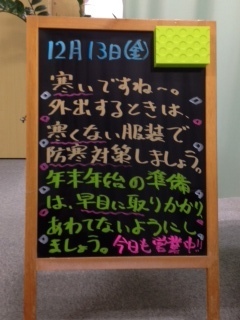 12月13日(金)
寒いですね〜。
外出するときは、
寒くない服装で
防寒対策しましょう。
年末年始の準備
は、早目に取りかかり
あわてないようにし
ましょう。今日も営業中!!